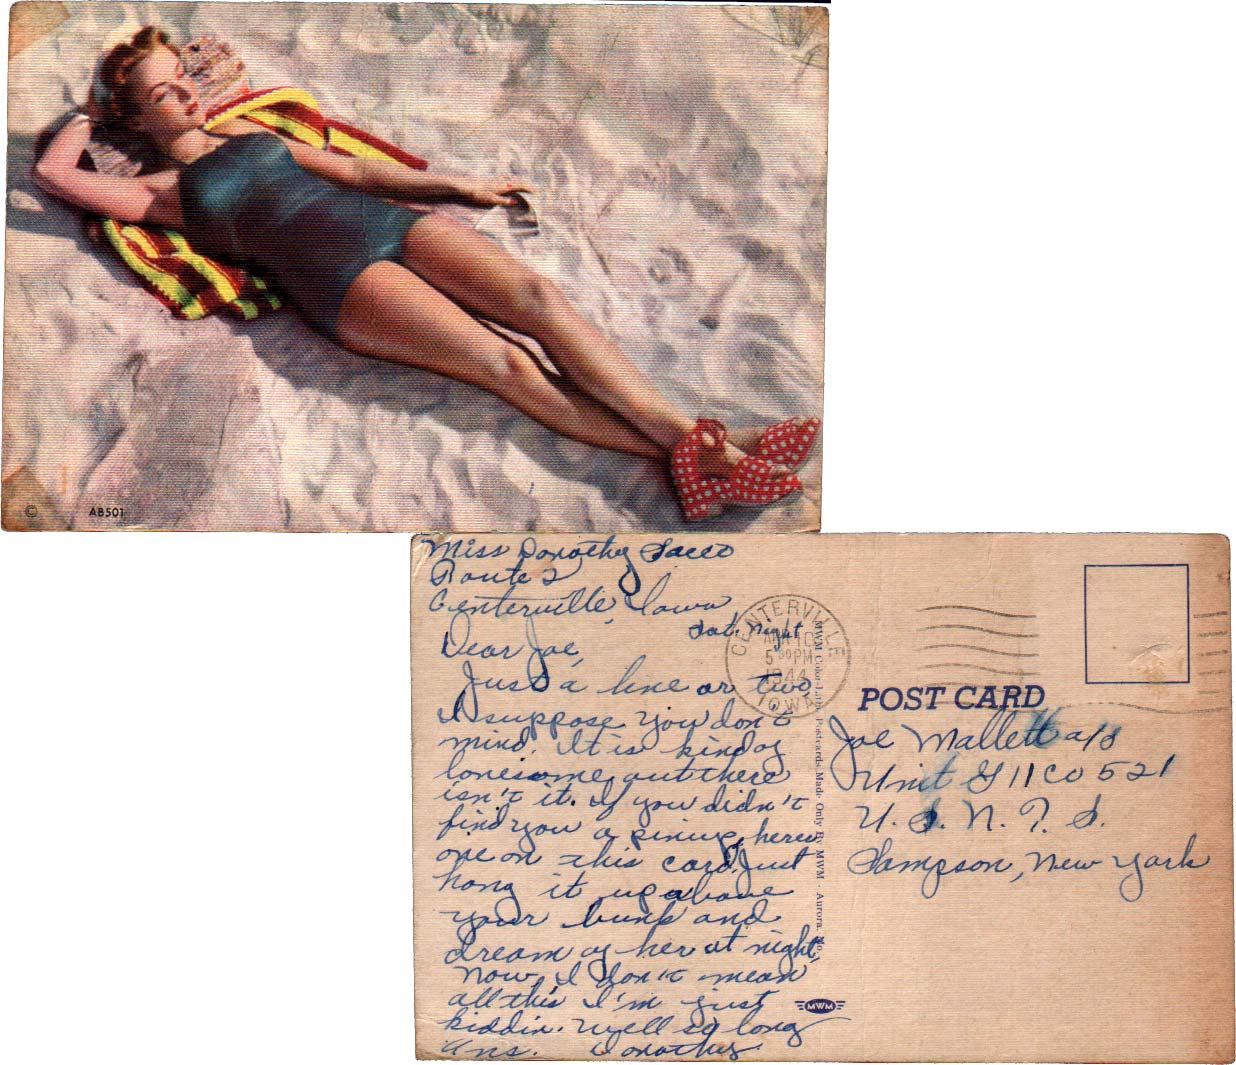 © AB501
Miss Dorothy Sacco
Route 2
Centerville, Iowa
Sat. Night
Dear Joe,
Just a line or two,
I suppose you don't
mind. It is kind of
lonesome out there
isn't it. If you didn't
find you a pinup, heres
one on this card. Just
hang it up above
your bunk and
dream of her at night,
Now, I don't mean
all this I'm just
kiddin. Well so long
Ans. Dorothy
CENTERVILLE
10
5 30 PM
1944
IOWA
MWM Color-Litho Postcards Made Only By MWM - Aurora, Mo.
MWM
POST CARD
Joe Mallett a/s
Unit G 11 CO 521
U. S. N. T. S.
Sampson, New York